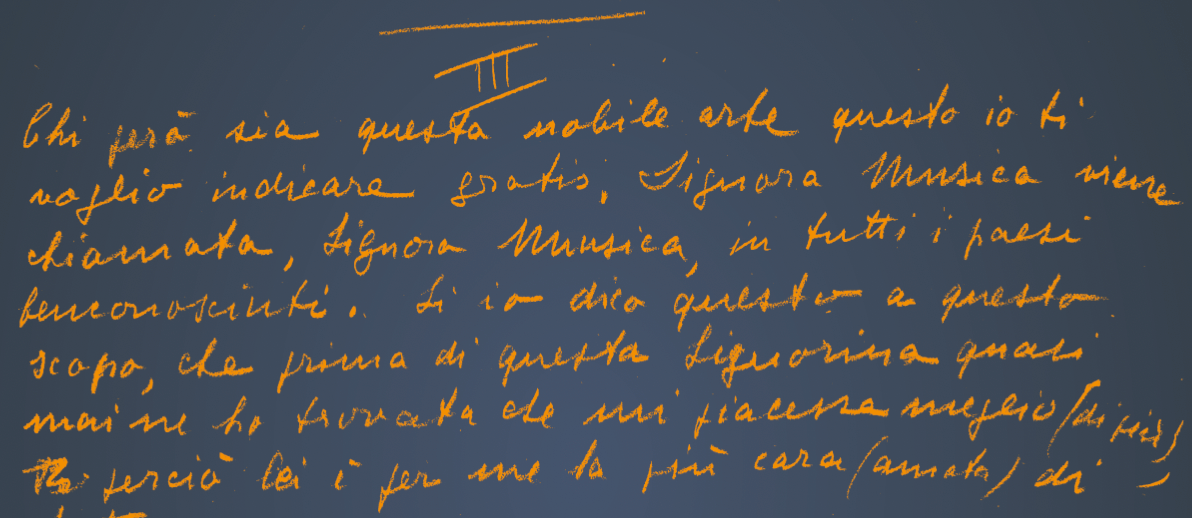 III
Chi però sia questa nobile arte questo io ti
voglio indicare gratis, Signora Musica viene
chiamata, Signora Musica, in tutti i paesi
benconosciuti. Si io dico questo a questo
scopo, che prima di questa Signorina quasi
mai ne ho trovata che mi piacesse meglio (di più)
perciò lei è per me la più cara (amata) di